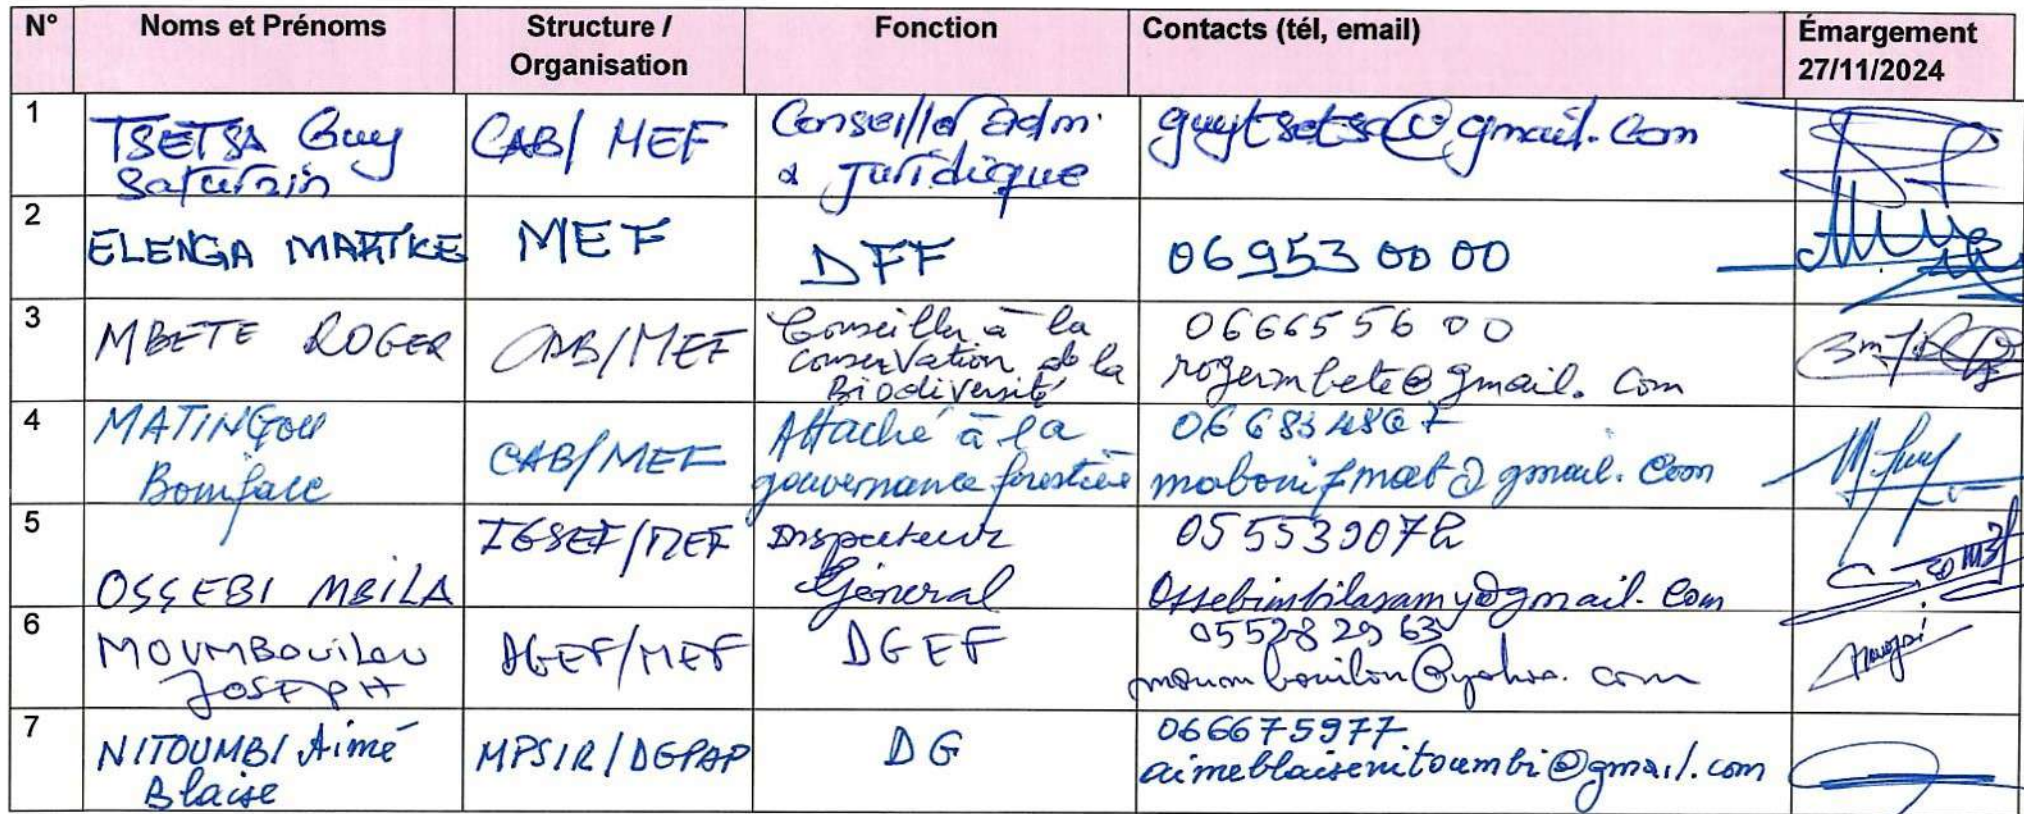 N° Noms et Prénoms Structure / Organisation Fonction Contacts (tél, email) Émargement 27/11/2024
1 TSETSA Guy Saturnin CAB/ MEF Conseiller adm. & Juridique guytsetsa@gmail.com
2 ELENGA MARTKE MEF DFF 06 953 00 00
3 MBETE ROGER CAB/MEF Conseiller à la conservation de la Biodiversité 066655600 rogermbete@gmail.com
4 MATINGOU Boniface CAB/MEF Attaché à la gouvernance forestière mabonifmat@gmail.com
5 OSSEBI MBILA IGSEF/MEF Inspecteur Général ossebimbilasamy@gmail.com
6 MOUMBOUILOU JOSEPH DGEF/MEF DGEF 05528 29 63 moumbouilou@yahoo.com
7 NITOUMBI Aimé Blaise MPSIR/DGPAP DG 066675977 aimeblaisenitoumbi@gmail.com